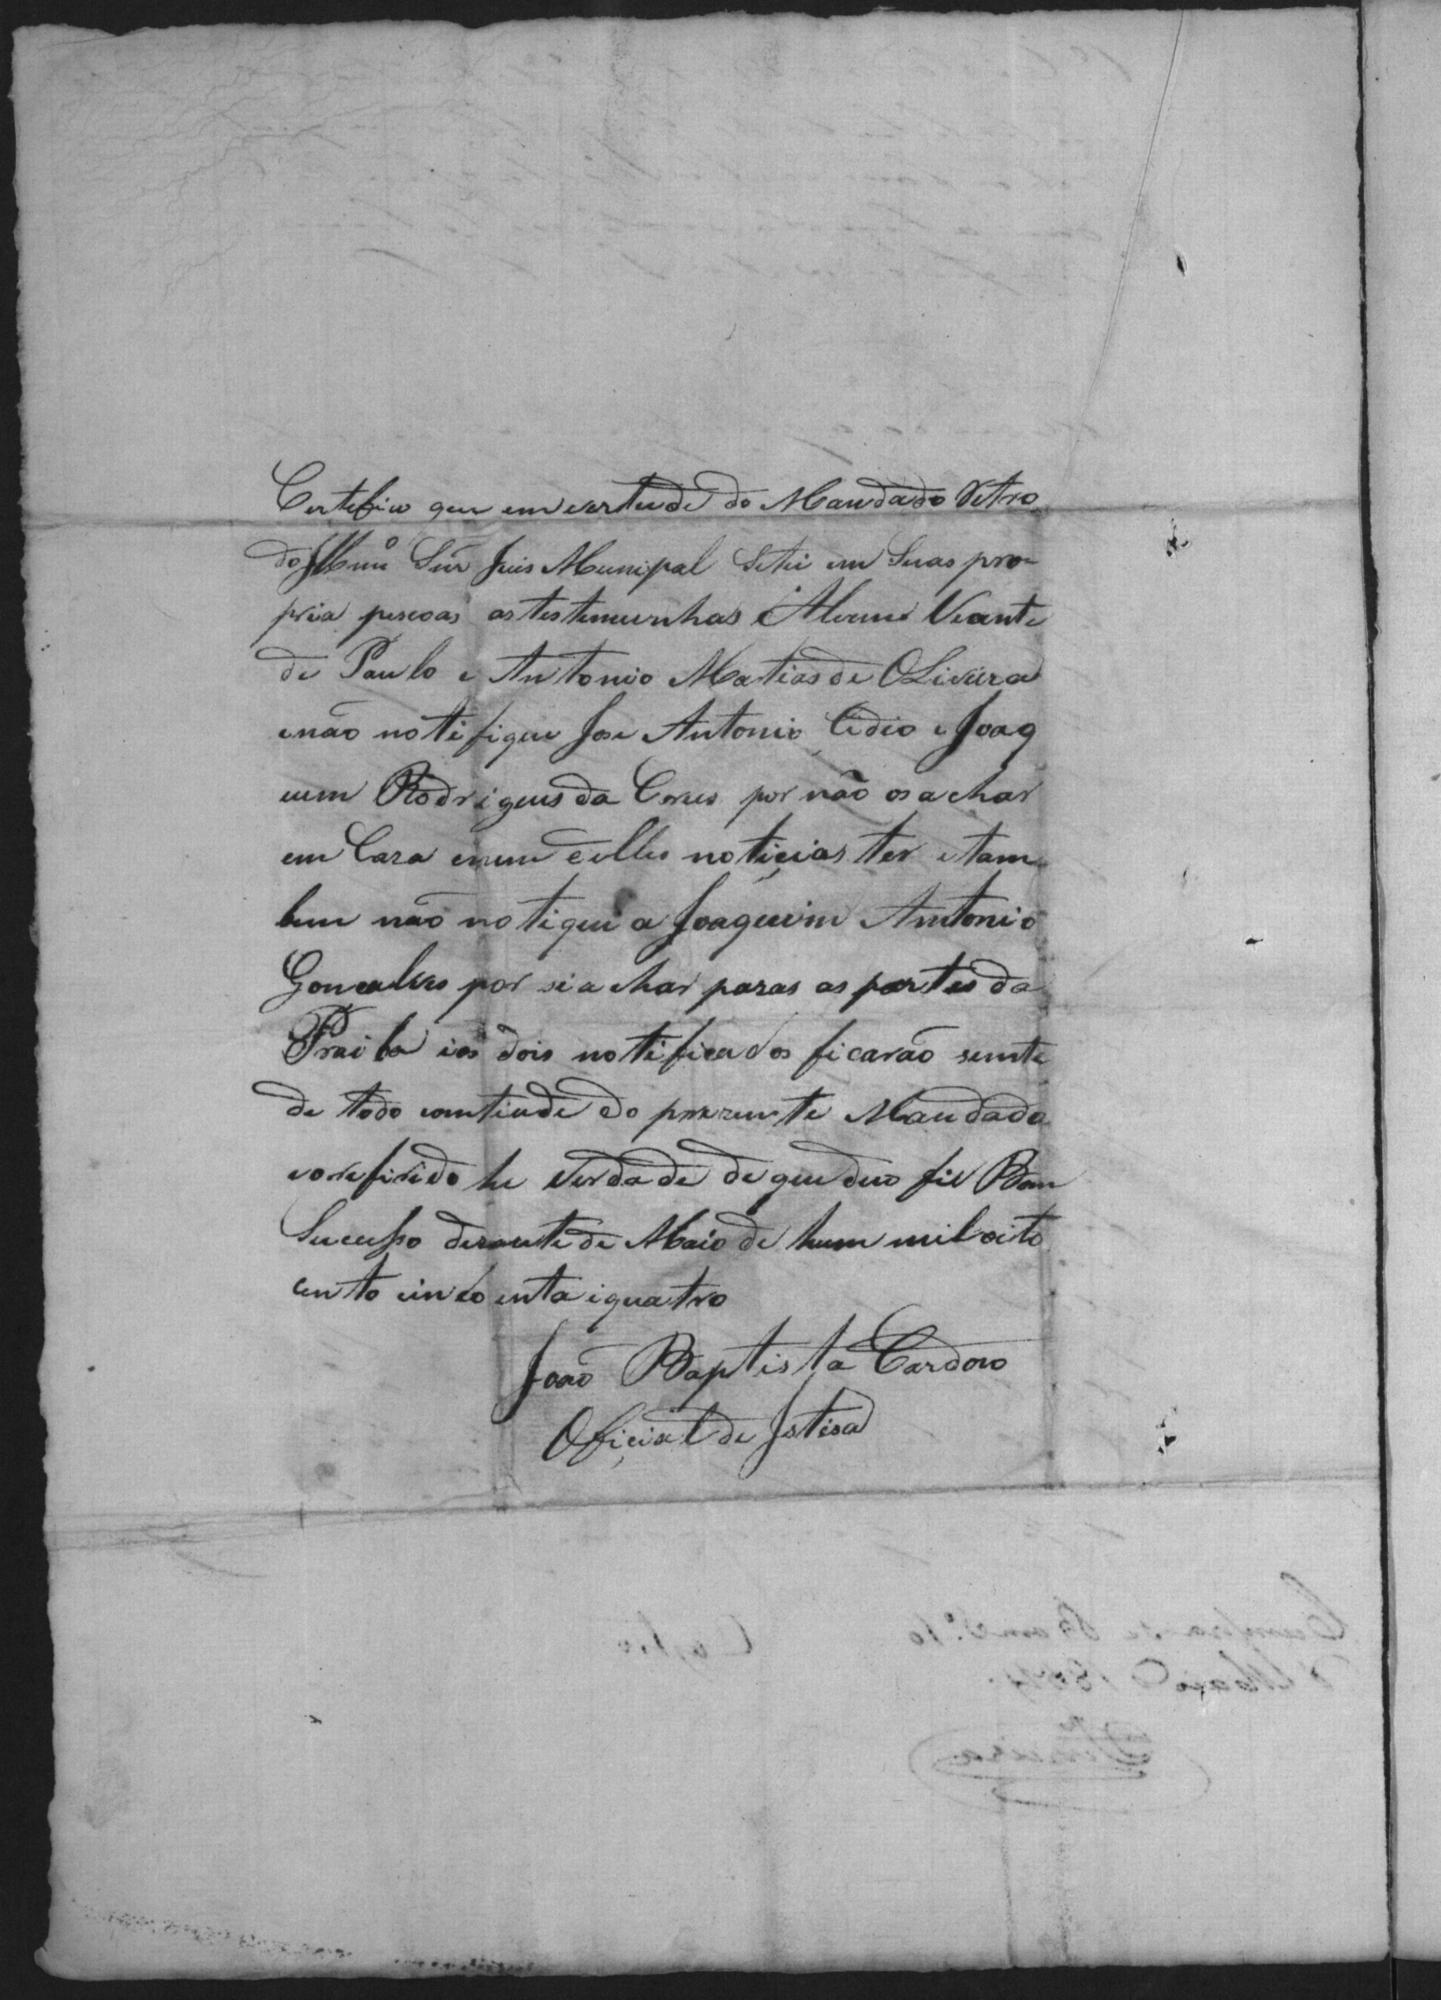 Certefico que em vertude do Mandado Retro
do Illmo Snr Juis Munipal Sitei em Suas pro-
pria pesoas as testemunhas Vicente
de Paulo e Antonio Matias de OLiveira
enão notifique Jose Antonio e Joaq
uim Rodrigues da por não os achar
em Caza enem delles noticias ter etam
bem não notiquei a Joaquim Antonio
Goncalves por si achar paras as partes da
ios dois notificados ficarão sente
de todo contiude do prezente Mandado
orefirido he verdade de que dou fie Bom
Sucesso de Maio de hum mil oito
cento cincoenta iquatro
João Baptista Cardozo
Oficial de Jstisa